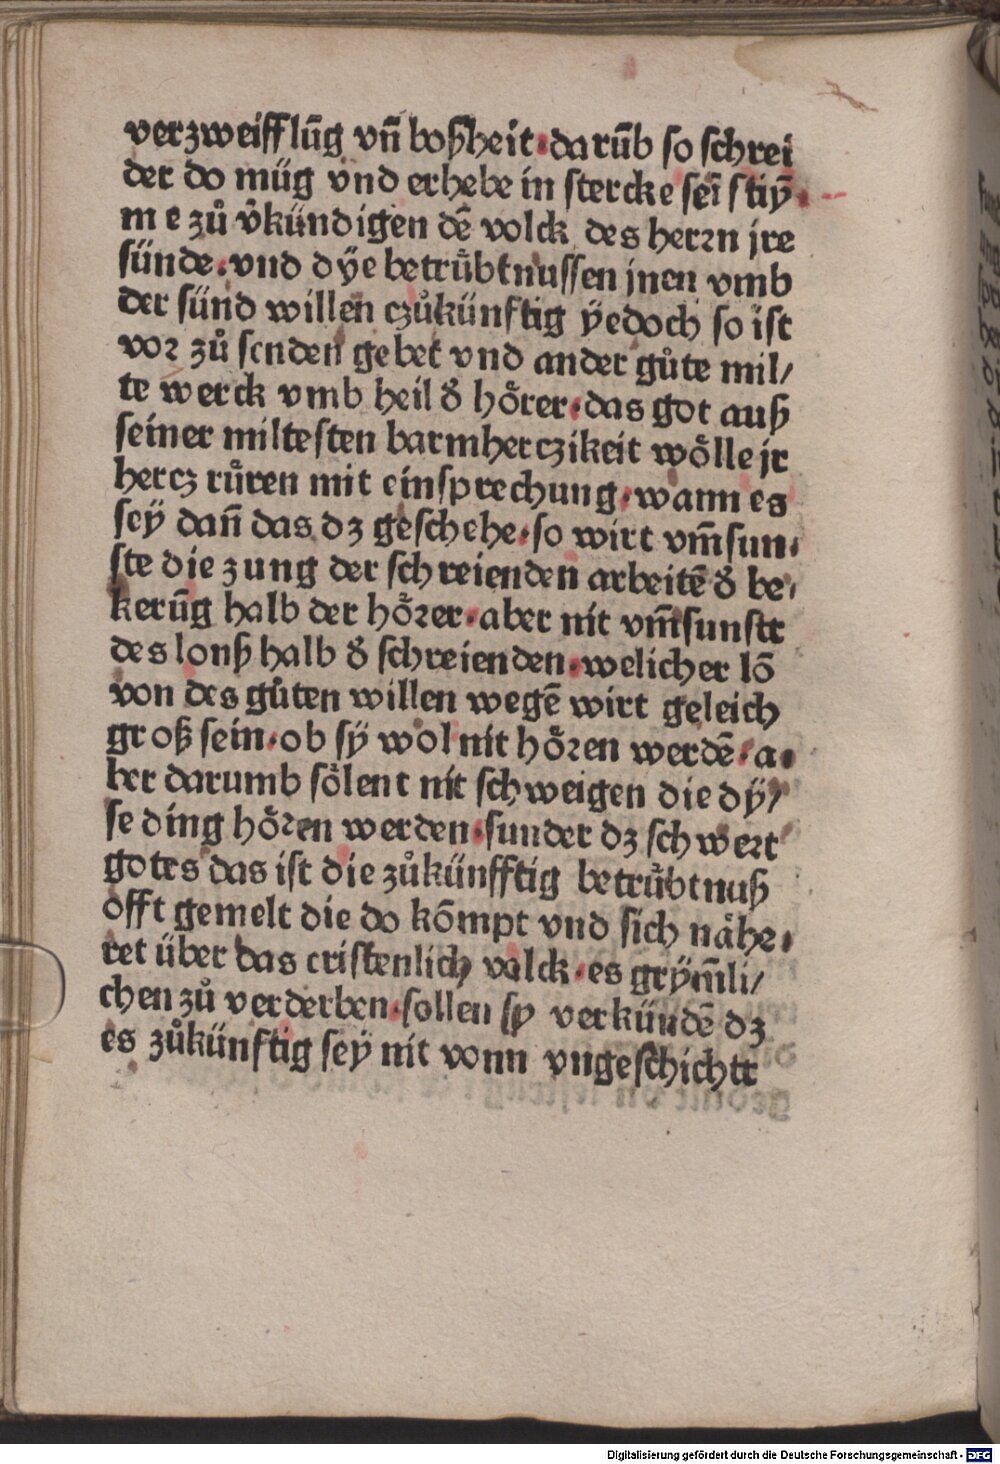 verzweifflūg vn̄ boßheit·darūb so schrei
der do müg vnd erhebe in stercke seī stiȳ·
me zů v̉kündigen dē volck des herꝛn jre
sünde·vnd dÿe betrů̈btnussen jnen vmb
der sünd willen czůkünftig ÿedoch so ist
voꝛ zů senden gebet vnd ander gůte mil/
te werck vmb heil d̉ hö̉rer·das got auß
seiner miltesten barmherczikeit wölle jr
hercz růren mit einsprechung·wann es
seÿ dan̄ das dz geschehe·so wirt vm̄sun·
ste die zung der schreienden arbeitē d̉ be·
kerūg halb der hö̉ꝛer·aber nit vm̄sunste
des lonß halb d̉ schreienden·welicher lō
von des gůten willen wegē wirt geleich
groß sein·ob sÿ wol nit höꝛen werdē·a·
ber darumb sölent nit schweigen die dÿ/
se ding höꝛen werden·sunder dz schweꝛt
gotes das ist die zůkünfftig betrů̈btnuß
offt gemelt die do kōmpt vnd sich nähe·
ret über das cristenlich volck·es grÿm̄li/
chen zů verderben·sollen sy verkündē dz
es zůkünftig seÿ nit vonn vngeschichte
Digitalisierung gefördert durch die Deutsche Forschungsgemeinschaft - DFG